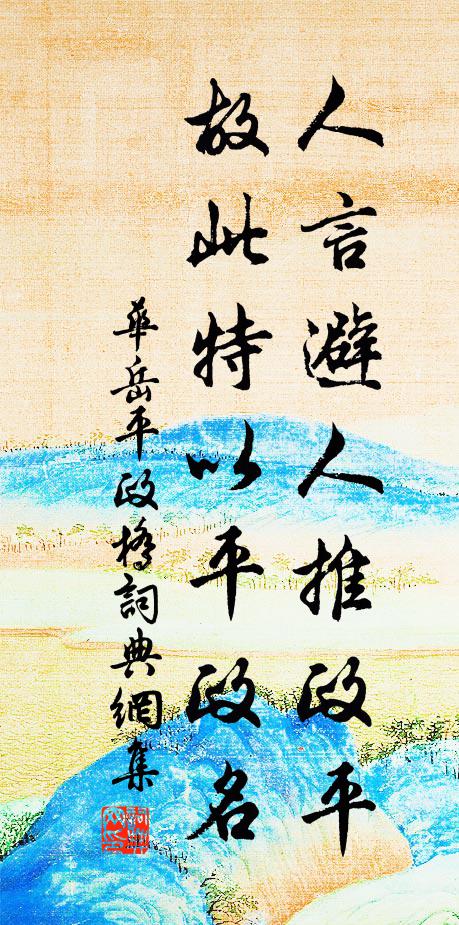 人言避人推政平
故此特以平政名
華岳平政橋詞典網集